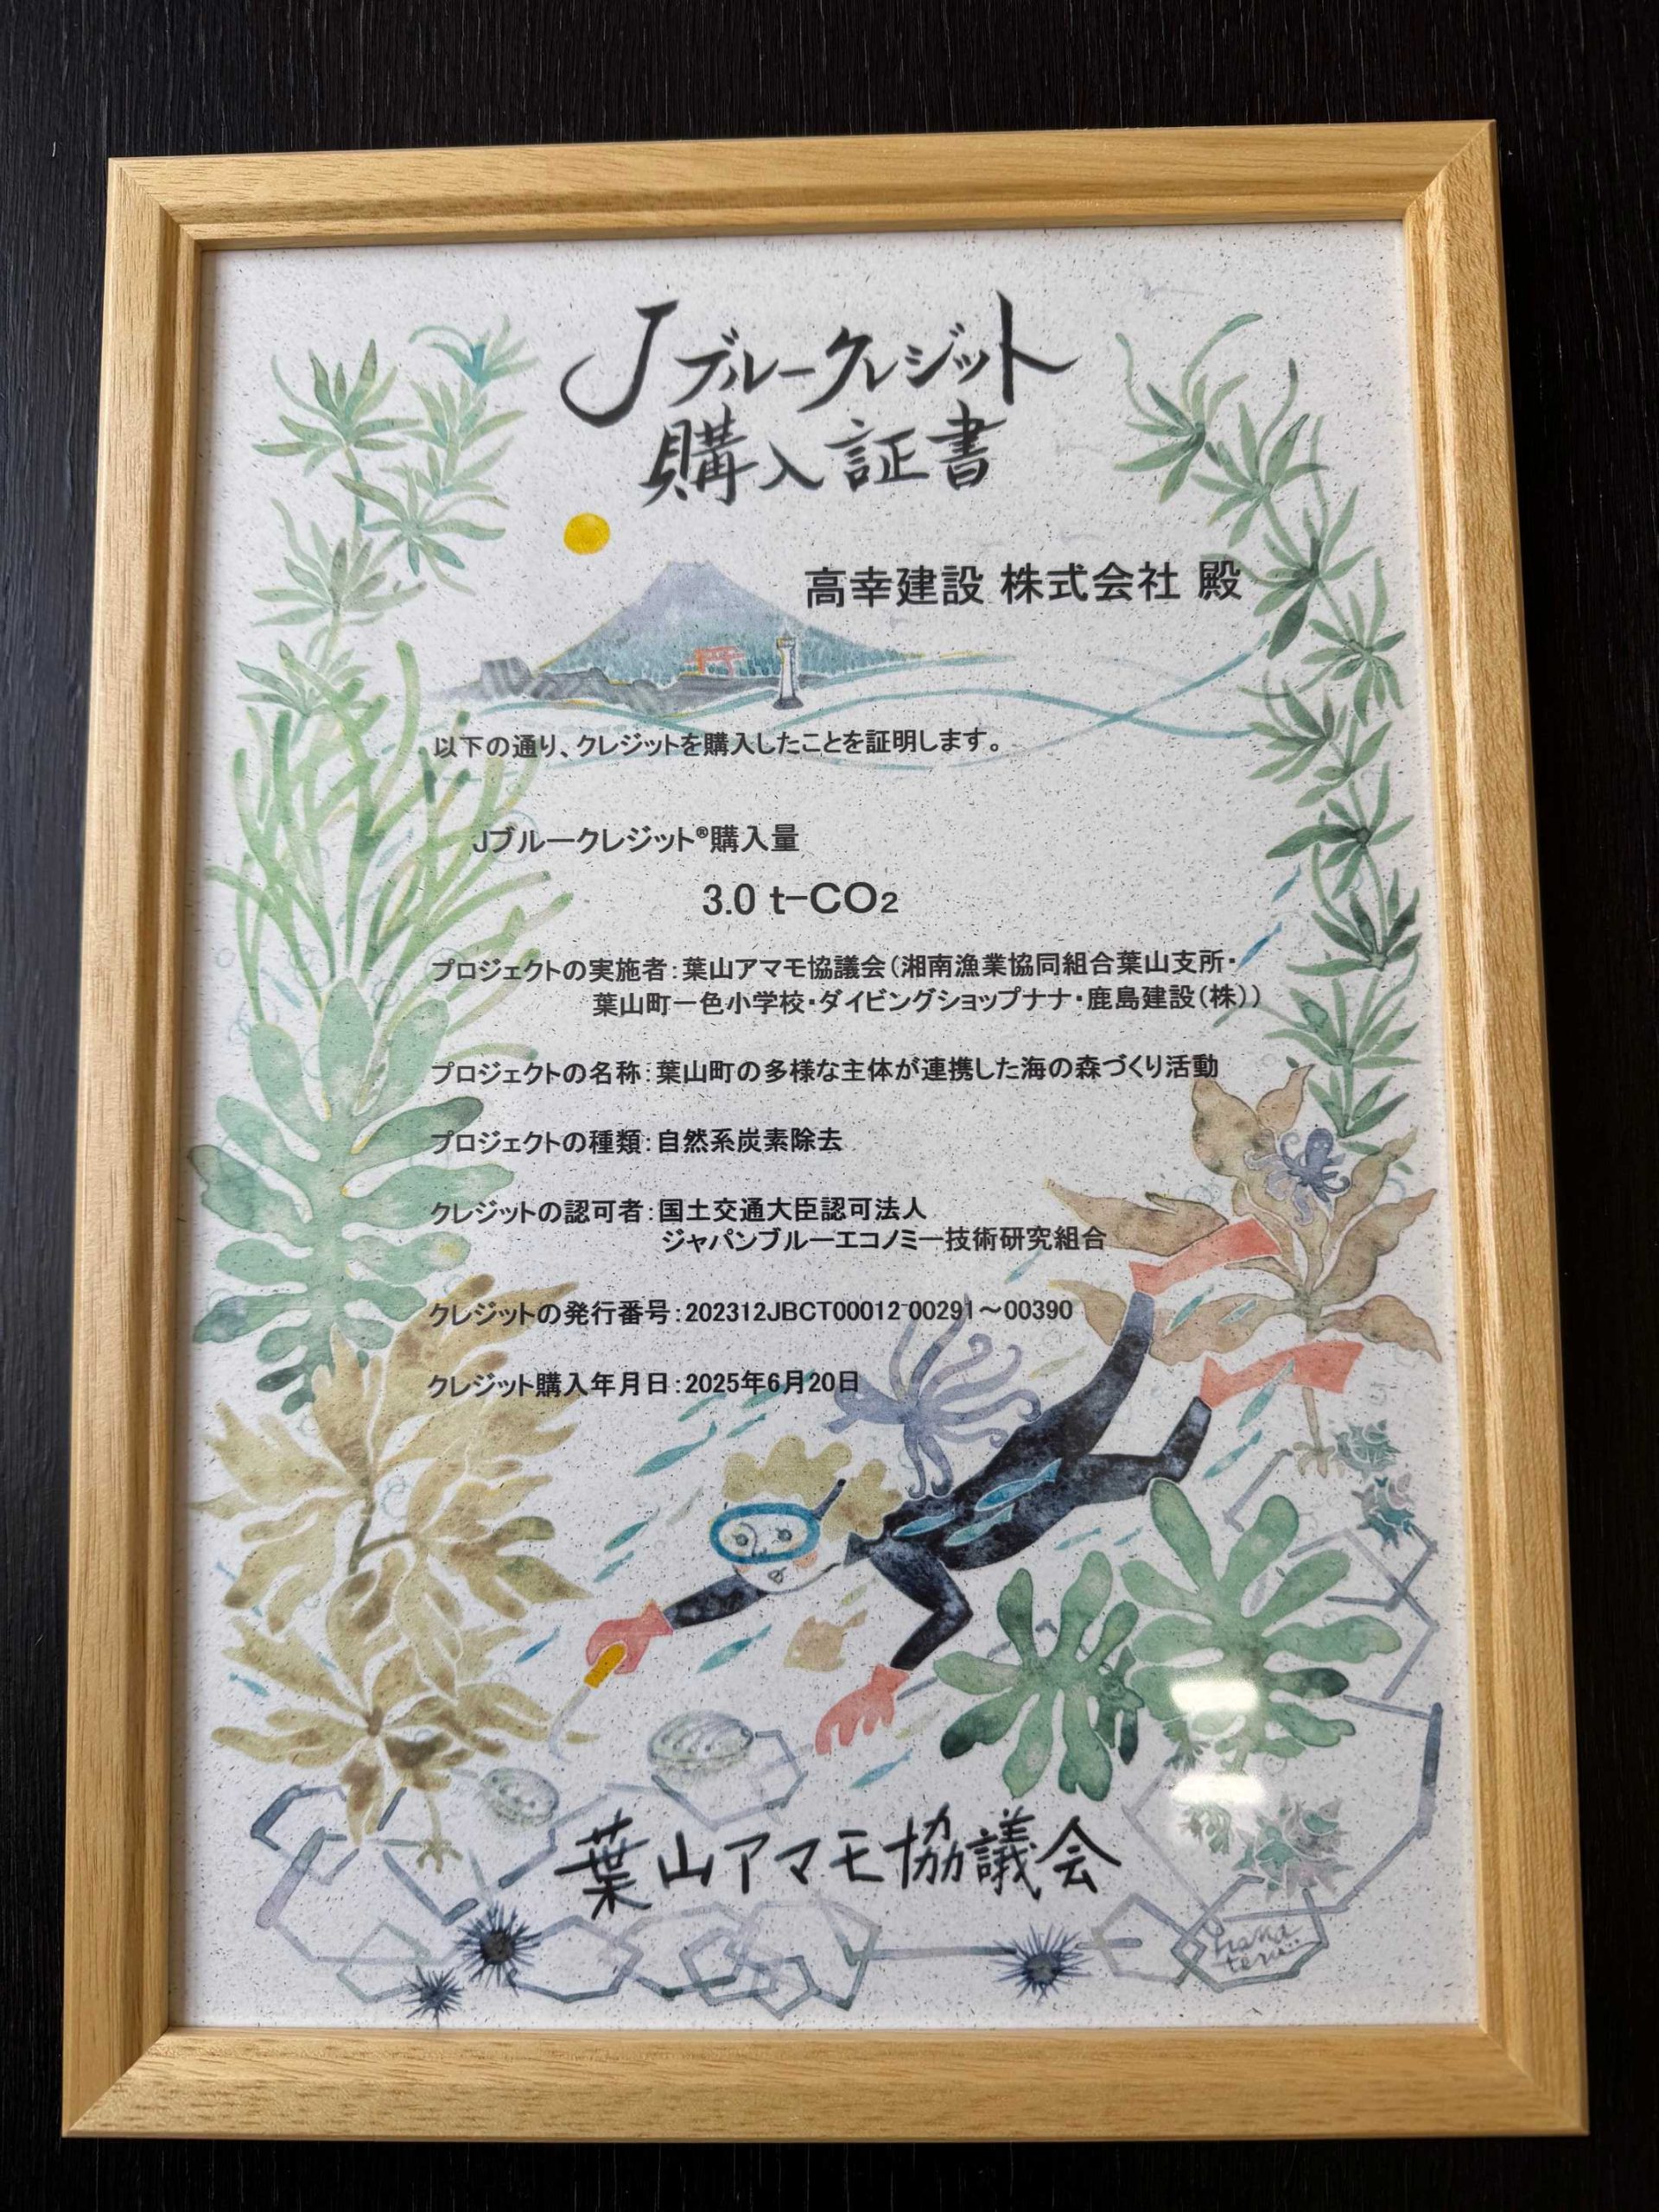 Jブルークレジット
購入証書
高幸建設 株式会社 殿
以下の通り、クレジットを購入したことを証明します。
Jブルークレジット®購入量
3.0 t-CO2
プロジェクトの実施者:葉山アマモ協議会(湘南漁業協同組合葉山支所・
葉山町一色小学校・ダイビングショップナナ・鹿島建設(株))
プロジェクトの名称:葉山町の多様な主体が連携した海の森づくり活動
プロジェクトの種類:自然系炭素除去
クレジットの認可者:国土交通大臣認可法人
ジャパンブルーエコノミー技術研究組合
クレジットの発行番号:202312JBCT00012-00291～00390
クレジット購入年月日:2025年6月20日
葉山アマモ協議会